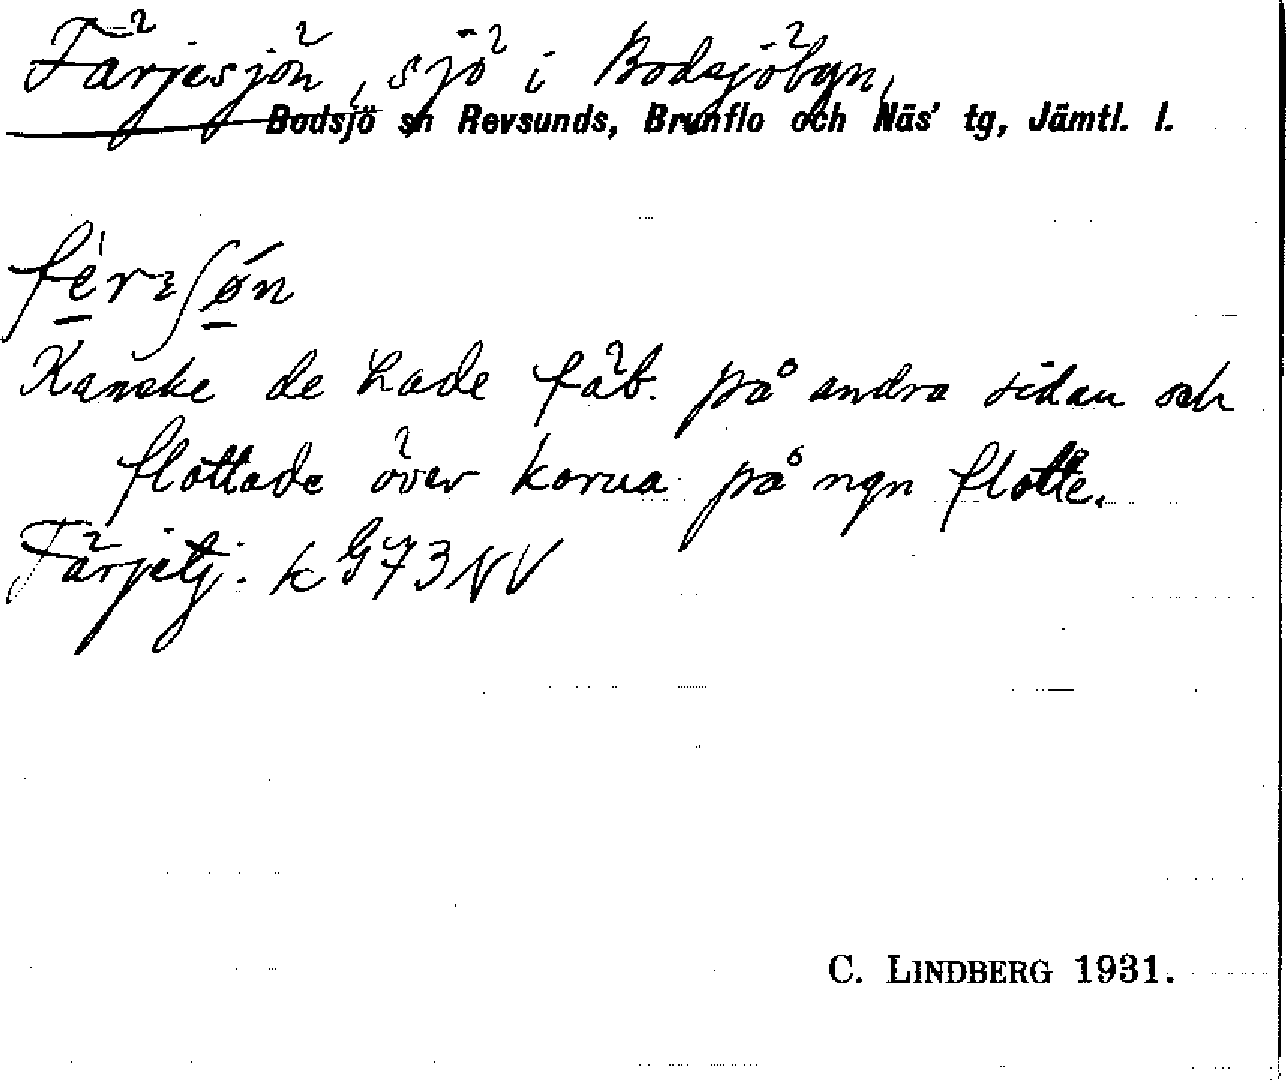 Färjesjön, sjö i Bodsjöbyn,
Bodsjö sn Revsunds, Brunflo och Näs' tg, Jämtl. l.
Kanske de hade fäb. på andra sidan och
flottade över korna på ngn flotte.
Färjetj. k G73NV
C. LINDBERG 1931.